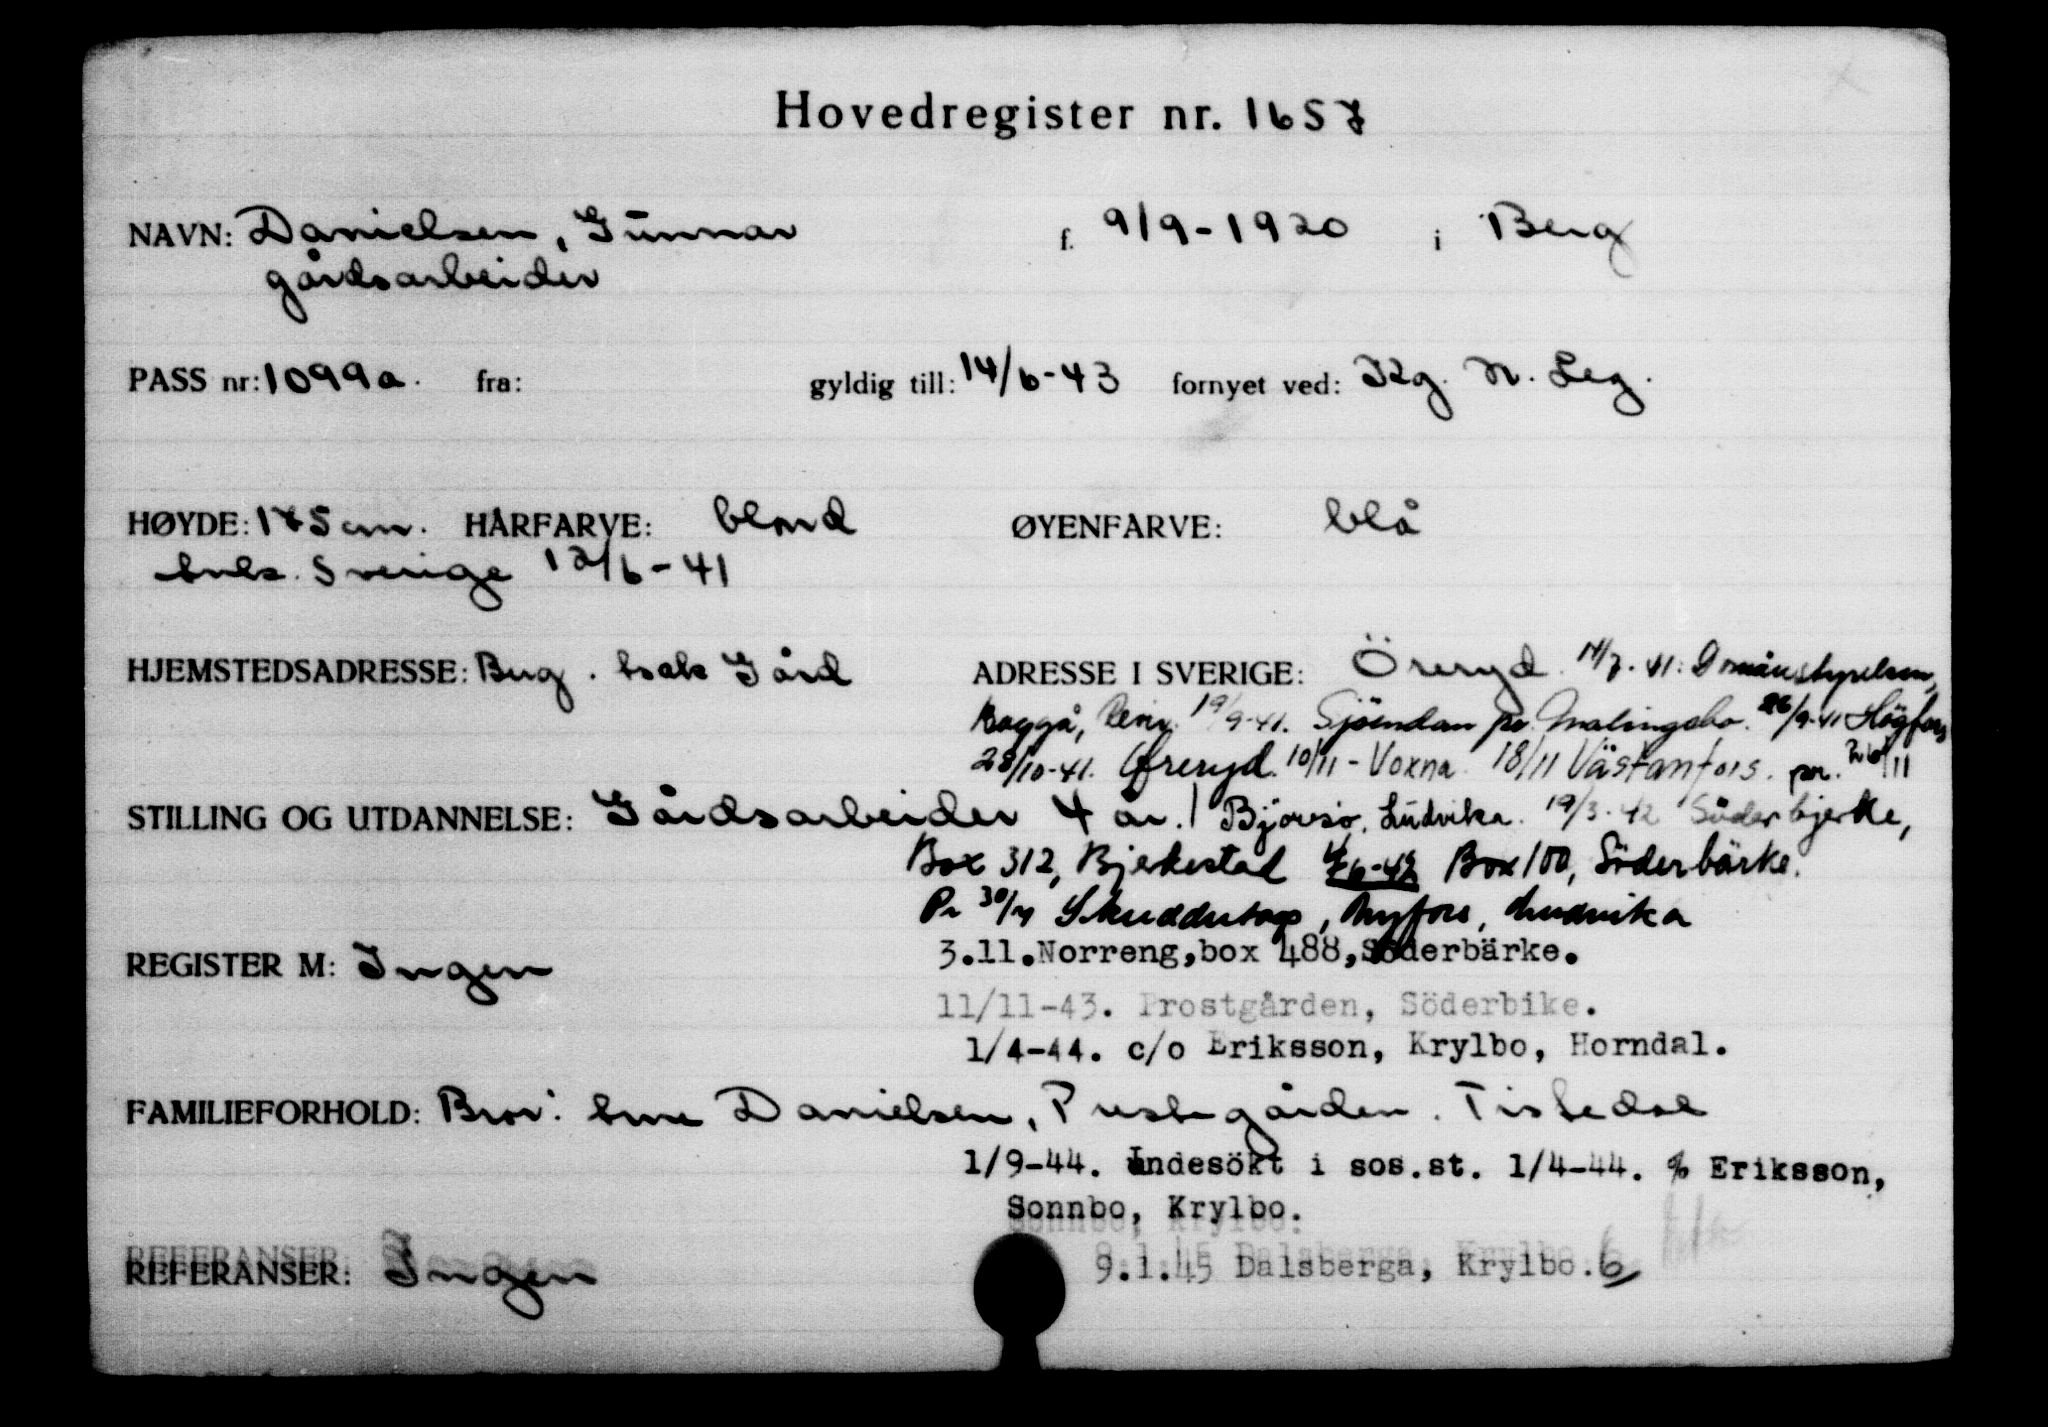 Hovedregister nr. 1657
NAVN: Danielsen, Gunnar f. 9/9-1920 i Berg
gårdsarbeider
PASS nr: 1099a. fra: gyldig till: 14/6-43 fornyet ved: Kg. N. Leg.
HØYDE: 175 cm. HÅRFARVE: blond ØYENFARVE: blå
Sverige 12/6-41
HJEMSTEDSADRESSE: Berg. Gård ADRESSE I SVERIGE: Öreryd. 14/7-41: Domänstyrelsen,
Baggå, 19/9-41. Sjöändan pr. Malingsbo. 26/9-41 Högfors
28/10-41. Øreryd. 10/11 - Voxna 18/11 Västanfors. pr. 26/11
STILLING OG UTDANNELSE: Gårdsarbeider 4 år. / Björsjö, Ludvika. 19/3-42 Söderbjerke,
Box 312, Bjerkestad Box 100, Söderbärke.
Pr 30/7 Nyfors, Ludvika
REGISTER M: Ingen 3.11. Norreng, box 488, Söderbärke.
11/11-43. Prostgården, Söderbike.
1/4-44. c/o Eriksson, Krylbo, Horndal.
FAMILIEFORHOLD: Bror: Danielsen, Prestegården. Tistedal
1/9-44. Undesökt i sos.st. 1/4-44. % Eriksson,
Sonnbo, Krylbo.
REFERANSER: Ingen 9.1.45 Dalsberga, Krylbo. 6